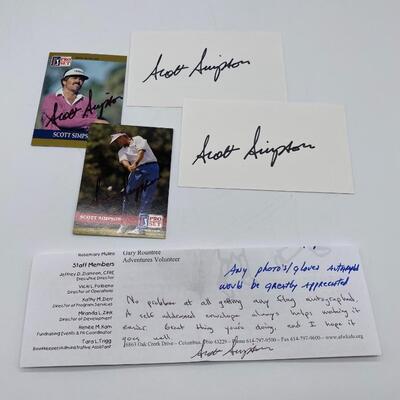 Scott Simpson
PRO SET
SCOTT SIMPSON
Scott Simpson
Scott Simpson
SCOTT SIMPSON
PRO SET
Rosemary Mullins
Staff Members
Jeffrey D. Damron, CFRE
Executive Director
Vicki L. Folberna
Director of Operations
Kathy M. Derr
Director of Program Services
Miranda L. Zinn
Director of Development
Renée M. Kam
Fundraising Events & PR Coordinator
Tara L. Trigg
Bookkeeper/Administrative Assistant
Gary Rountree
Adventures Volunteer
Any photo's/gloves autographed
would be greatly appreciated
No problem at all getting any flag autographed.
A self addressed envelope always helps making it
easier. Great thing you're doing, and I hope it
goes well.
Scott Simpson
6863 Oak Creek Drive – Columbus, Ohio 43229 – Phone 614-797-9500 – Fax 614-797-9600 –